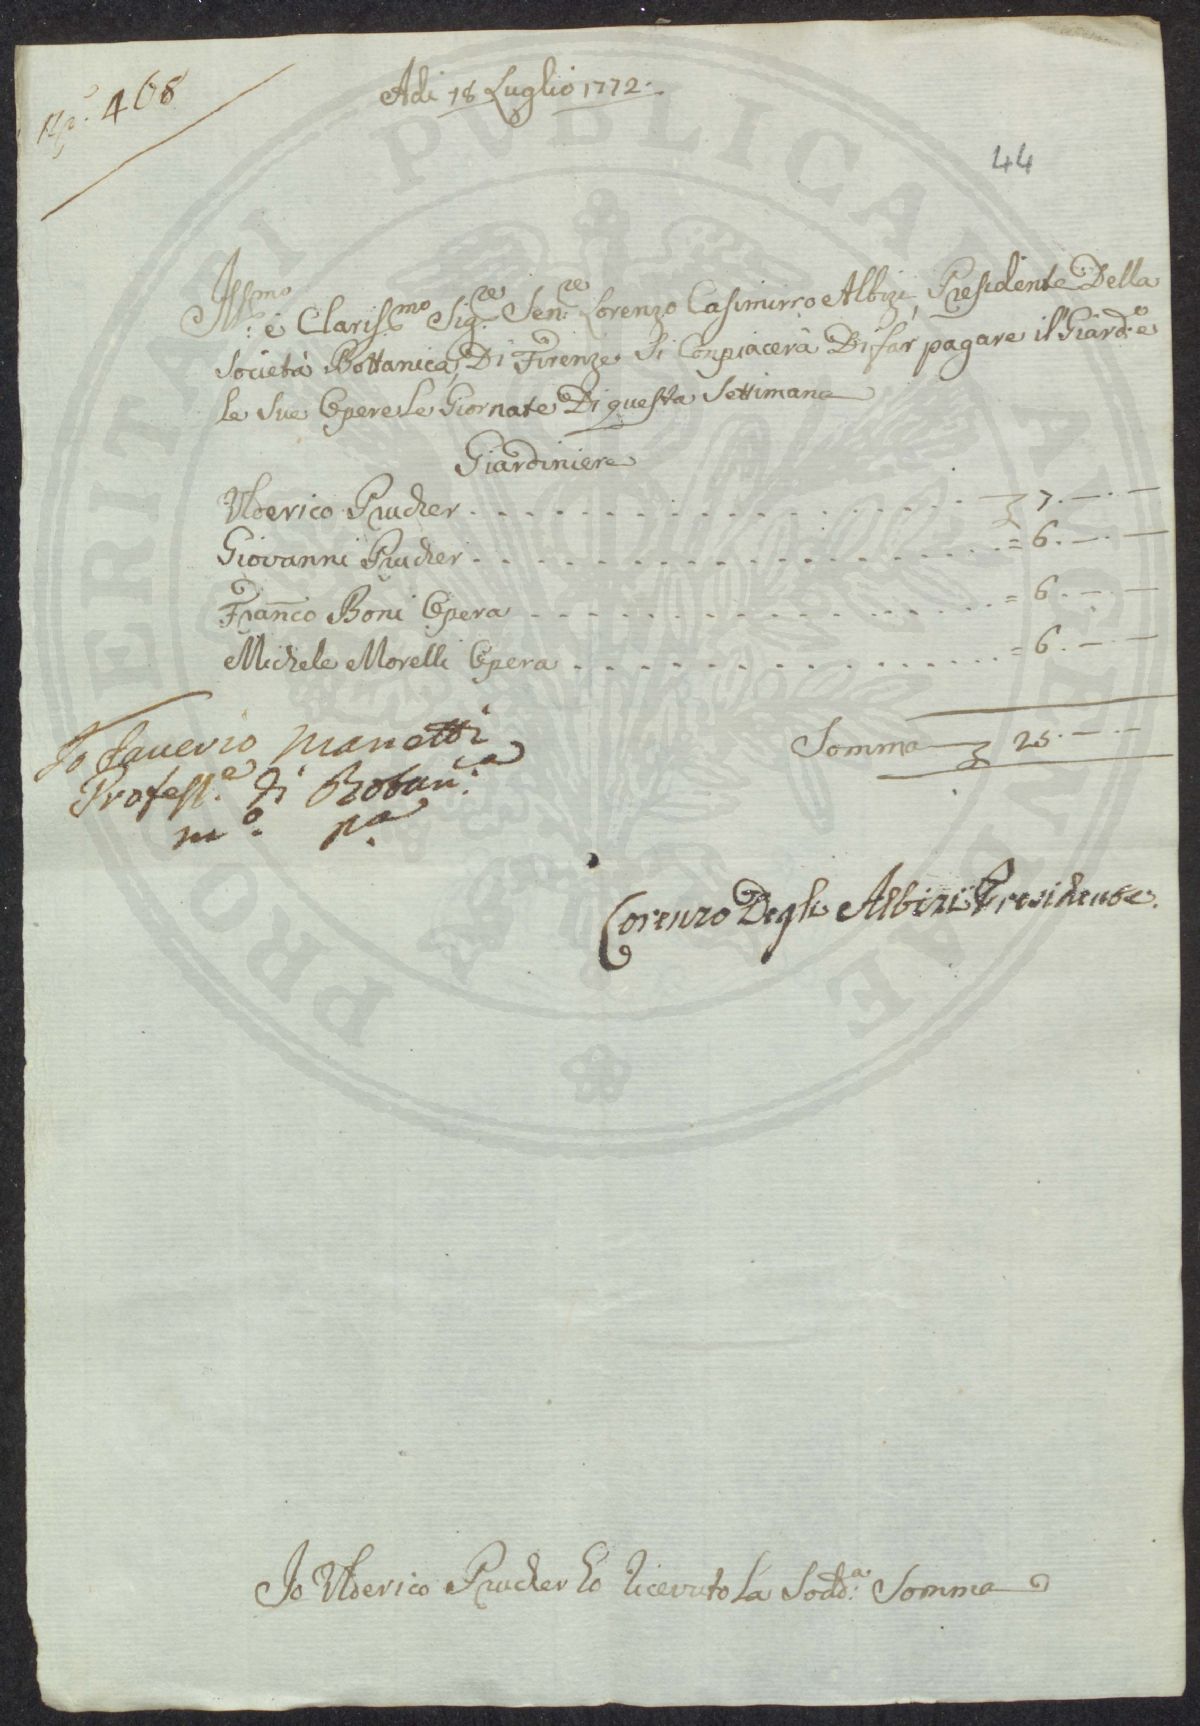 N.º 468
Adi 18 Luglio 1772.
44
Ill.mo é Claris.mo Sig.re Sen.re Lorenzo Casimirro Albizi, Presidente Della
Società Bottanica, Di Firenze, Si Conpiacerà Di far pagare il Giard.e e
le Sue Opere le Giornate Di questa Settimana
Giardiniere
Ulderico Prucher 7.—.—
Giovanni Prucher = 6.—.—
Franco Boni Opera = 6.—.—
Michele Morelli Opera = 6.—.—
Somma 25.—.—
Io Saverio Manetti
Profess.e di Botan.ca
m.o p.a
Lorenzo Degli Albizi Presidente.
Io Ulderico Prucher ho ricevuto la Sodd.a Somma
PROSPERITATI PUBLICAE AUGENDAE